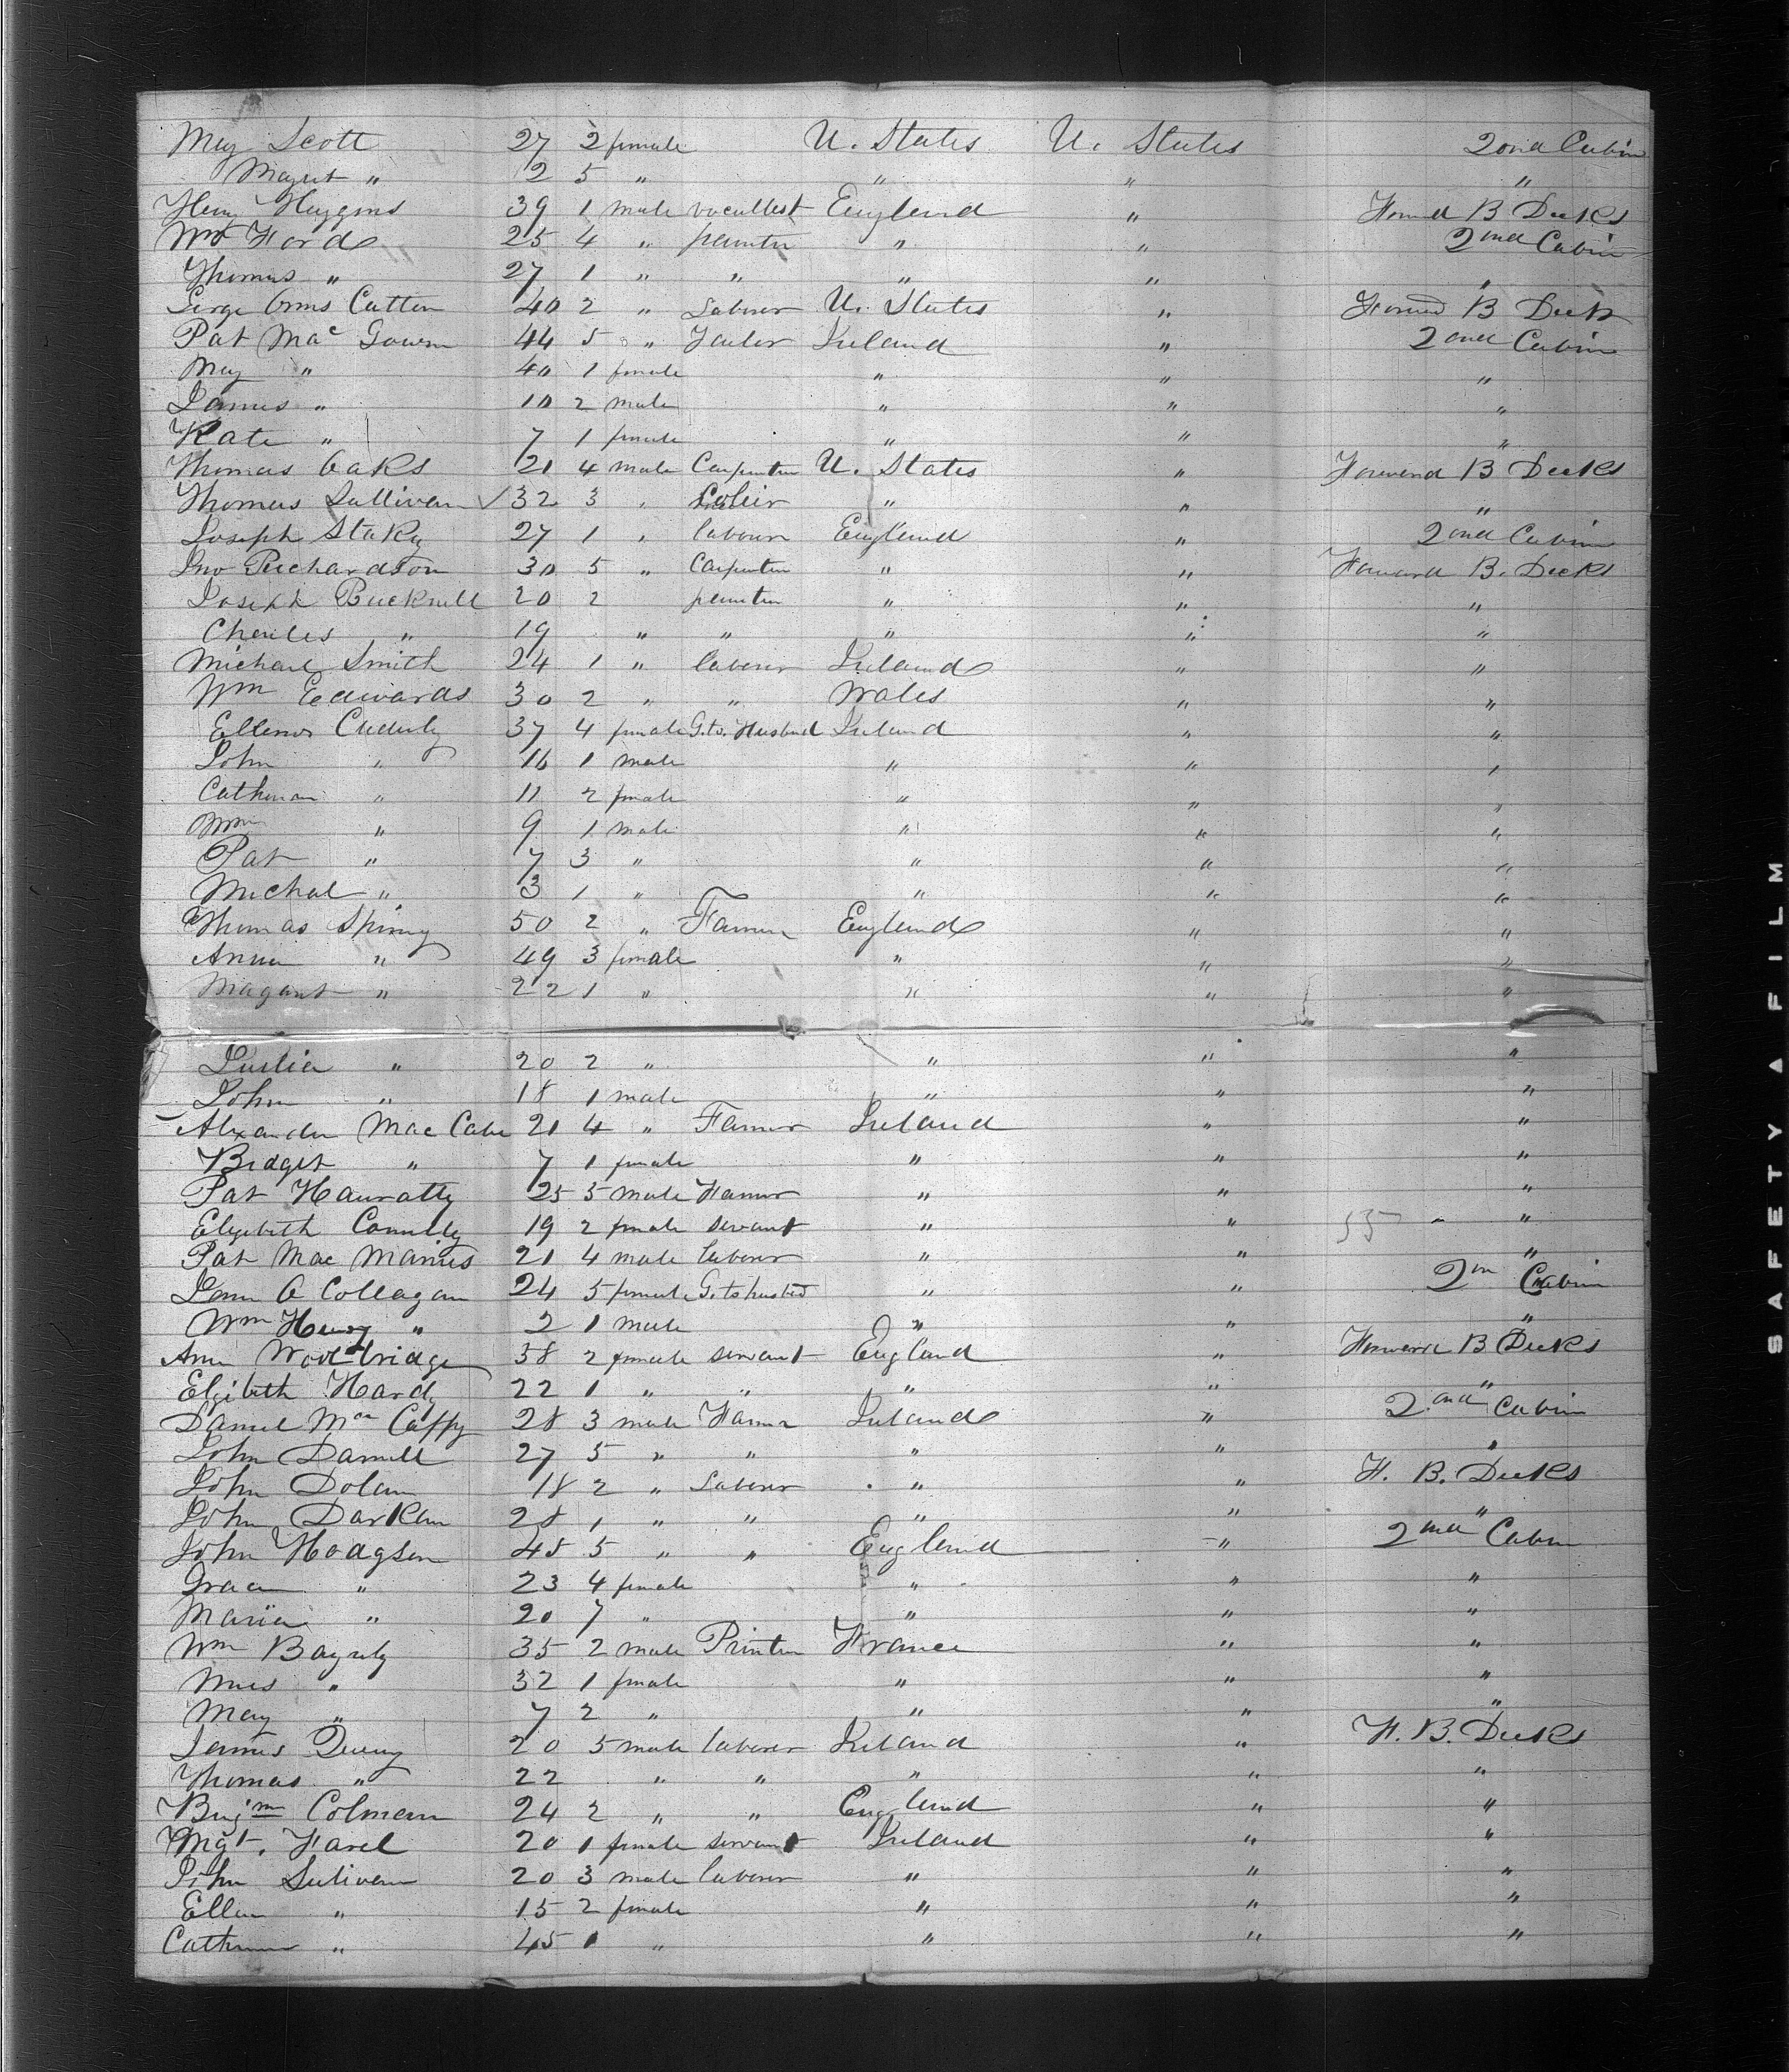 May Scott 27 2 female U. States U. States 2ond Cabin
Magret " 2 5 " " " "
Heny Huggins 39 1 male vocallest England " Forwd B Decks
Wm Ford 25 4 " painter " " 2ond Cabin
Thomas " 27 1 " " " " "
George Orms Cutten 40 2 " Laborer U. States " Forwd B Deck
Pat Mac Gowen 44 5 " Tailor Ireland " 2ond Cabin
May " 40 1 female " " "
James " 10 2 male " " "
Kate " 7 1 female " " "
Thomas Oaks 21 4 male Carpenter U. States " Forward B Decks
Thomas Sullivan ✓ 32 3 " " " "
Joseph Staky 27 1 " labourer England " 2ond Cabin
Jno Richardson 30 5 " Carpenter " " Forward B. Decks
Joseph Bucknell 20 2 painter " " "
Charles " 19 " " " " "
Michael Smith 24 1 " laborer Ireland " "
Wm Edwards 30 2 " " Wales " "
Ellenor Cuddily 37 4 female G. to. Husband Ireland " "
John " 16 1 male " " "
Catherine " 11 2 female " " "
Wm " 9 1 male " " "
Pat " 7 3 " " " "
Michal " 3 1 " " " "
Thomas Spinny 50 2 " Farmer England " "
Anna " 49 3 female " " "
Magaret " 22 1 " " " "
Luelia " 20 2 " " " "
John " 18 1 male " " "
Alexander Mac Cabe 21 4 " Farmer Ireland " "
Bridget " 7 1 female " " "
Pat Hanratty 25 5 male Farmer " " "
Elizebeth Connilly 19 2 female servant " " 55 "
Pat Mac Manus 21 4 male laborer " " "
Jenn A Collagan 24 5 female G. to husbed " " 2on Cabin
Wm Henry " 2 1 male " " "
Ann Wooltridge 38 2 female servant England " Forward B Decks
Elzibeth Hardy 22 1 " " " " "
Daniel Mac Caffy 28 3 male Farmer Ireland " 2ond Cabin
John Darnell 27 5 " " " " "
John Dolan 18 2 " Laborer " " F. B. Decks
John Darkan 28 1 " " " " "
John Hodgson 45 5 " " England " 2ond Cabin
Grace " 23 4 female " " "
Maria " 20 7 " " " "
Wm Bayrly 35 2 male Printer France " "
Mrs " 32 1 female " " "
May " 7 2 " " " "
James Quiny 20 5 male laborer Ireland " F. B. Decks
Thomas " 22 " " " " "
Benjm Colman 24 2 " " England " "
Mgt. Farel 20 1 female servant Ireland " "
John Sulivan 20 3 male laborer " " "
Ellen " 15 2 female " " "
Catherine " 45 1 " " " "
SAFETY A FILM